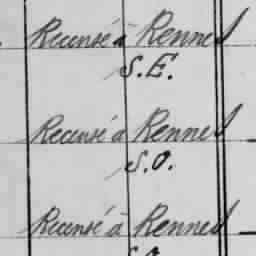 Recensé à Rennes
S.E.
Recensé à Rennes
S.O.
Recensé à Rennes